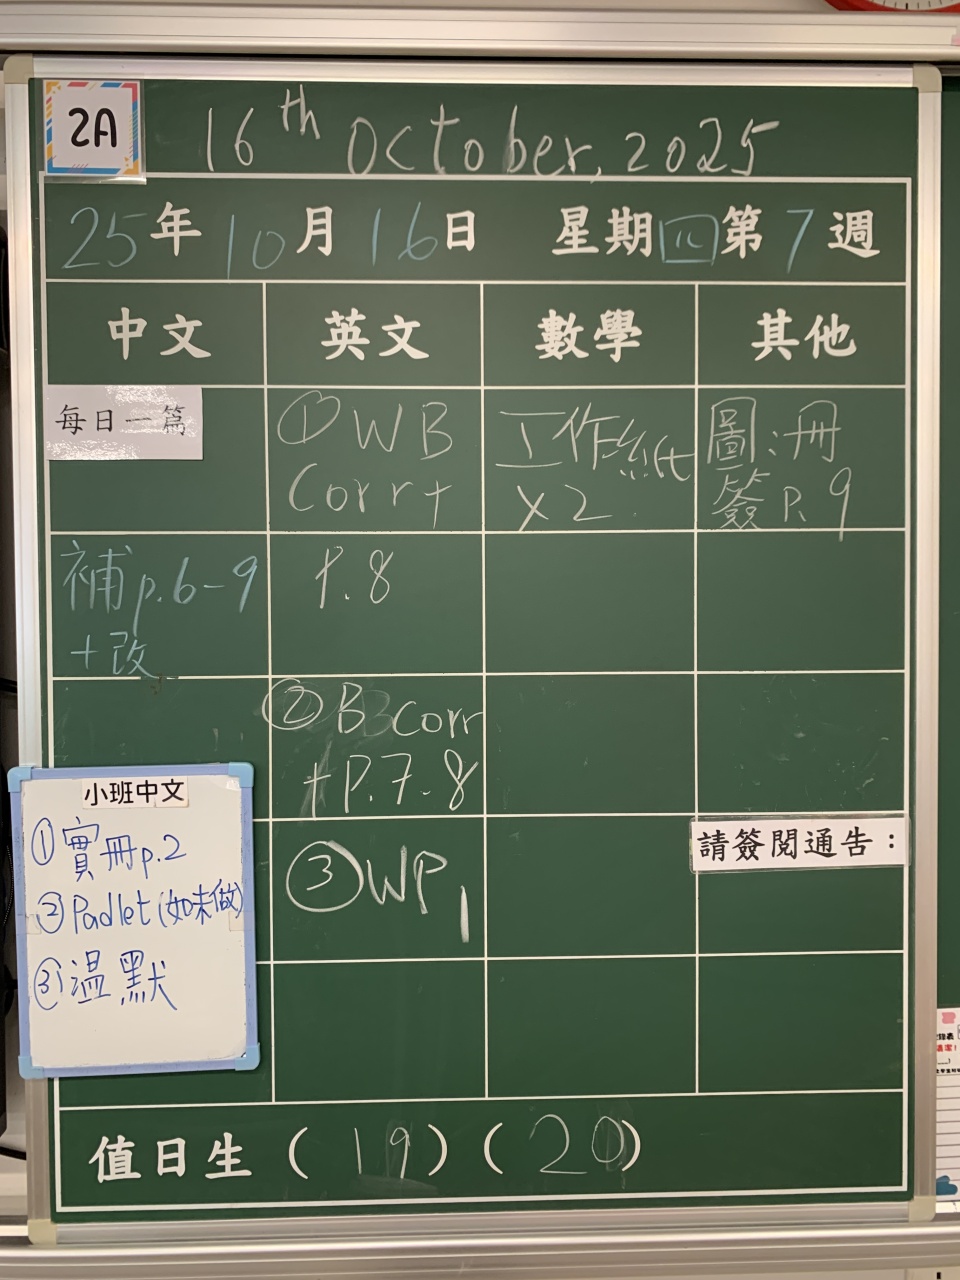 2A
16th October, 2025
25年10月16日 星期四第7週
中文 英文 數學 其他
每日一篇
補p.6-9
+改
① WB
Corr+
P.8
② B Corr
+P.7-8
③ WP1
工作紙
x2
圖:冊
簽P.9
請簽閱通告：
小班中文
① 實冊p.2
② Padlet(如未做)
③ 溫默
值日生（19）（20）